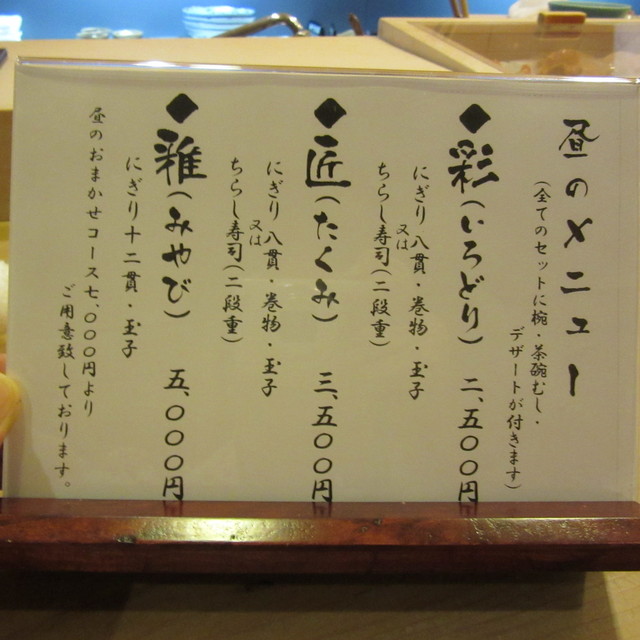 昼のメニュー
(全てのセットに椀・茶碗むし・
デザートが付きます)
◆彩(いろどり) 二、五〇〇円
にぎり八貫・巻物・玉子
又は
ちらし寿司(二段重)
◆匠(たくみ) 三、五〇〇円
にぎり八貫・巻物・玉子
又は
ちらし寿司(二段重)
◆雅(みやび) 五、〇〇〇円
にぎり十二貫・玉子
昼のおまかせコース七、〇〇〇円より
ご用意致しております。